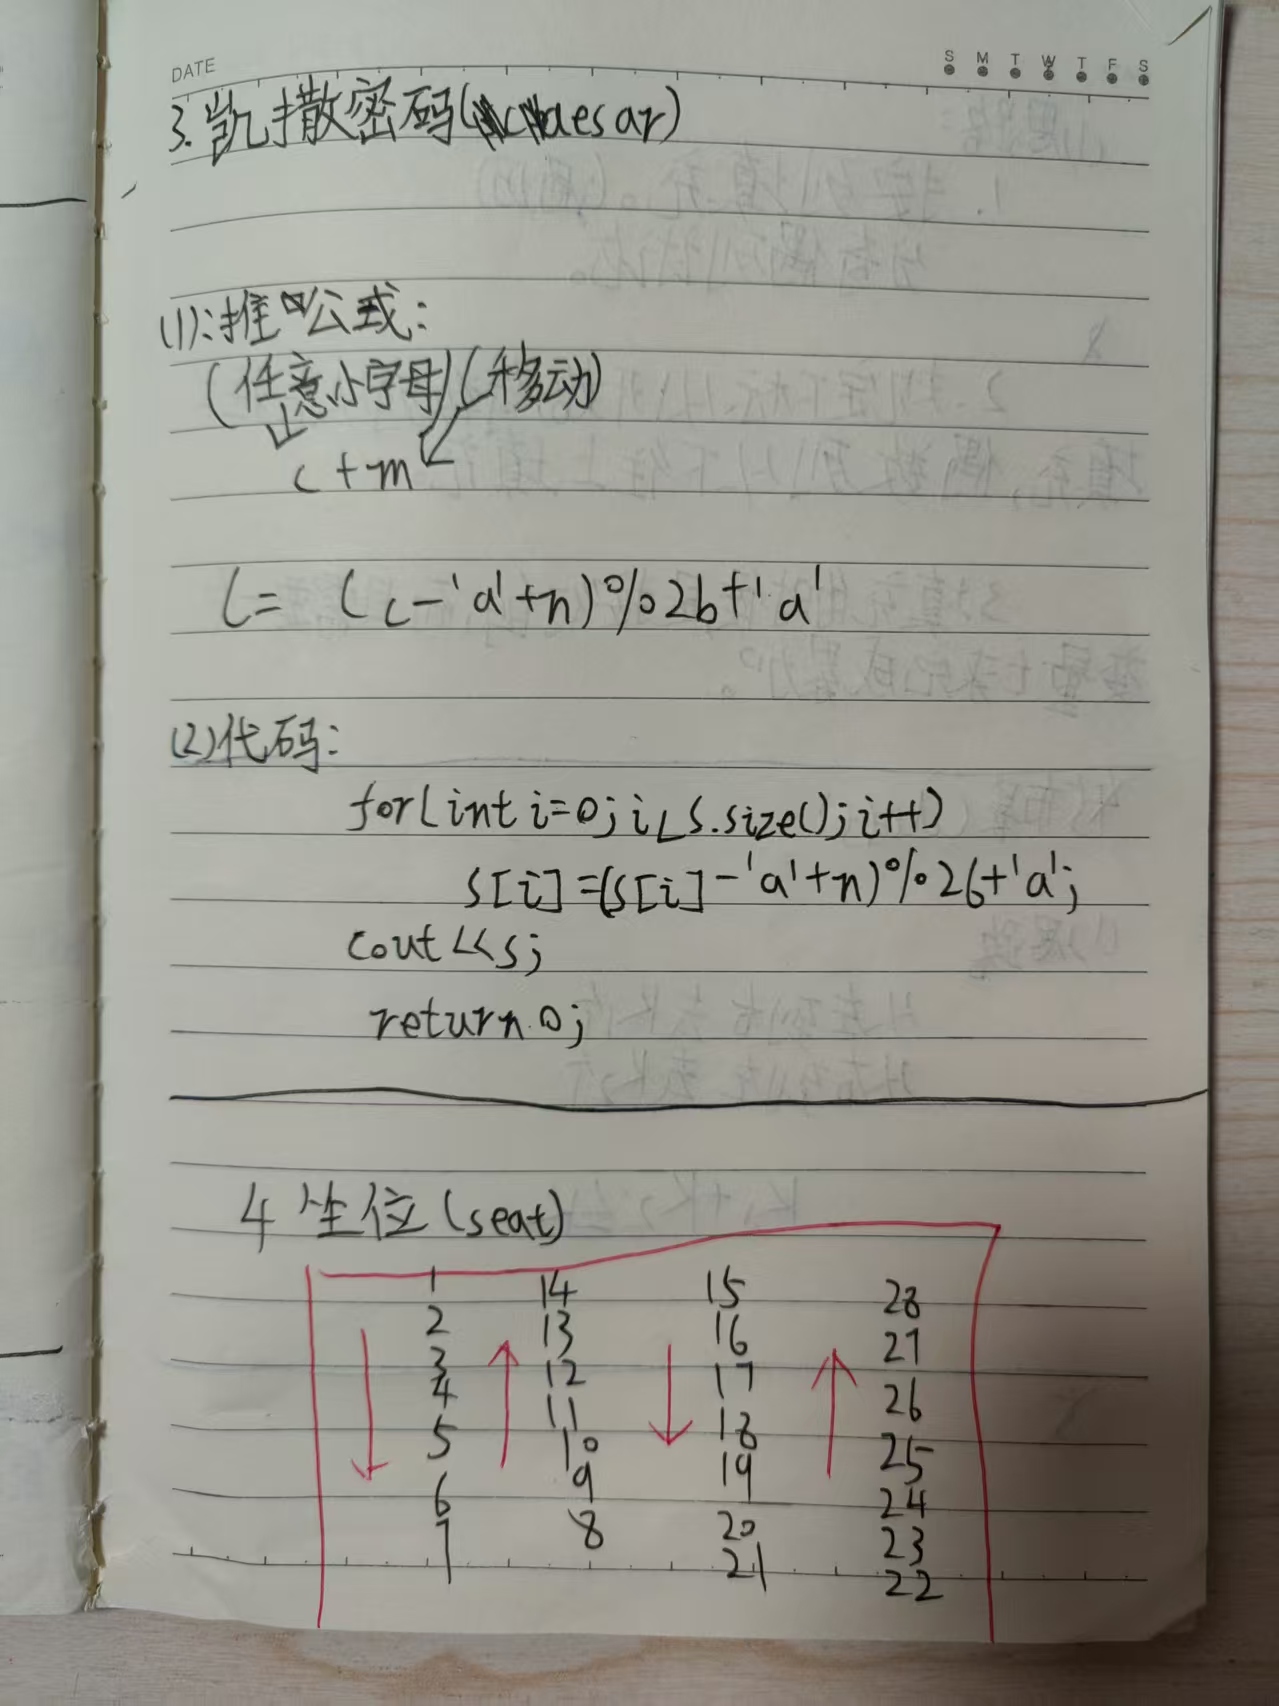 DATE
S M T W T F S
3.凯撒密码(caesar)
(1):推公式:
(任意小字母)(移动)
c+m
c= (c-'a'+n)%26+'a'
(2)代码:
for(int i=0;i<s.size();i++)
s[i]=(s[i]-'a'+n)%26+'a';
cout<<s;
return 0;
4 坐位(seat)
1 14 15 28
2 13 16 27
3 12 17 26
4 11 18 25
5 10 19 24
6 9 20 23
7 8 21 22